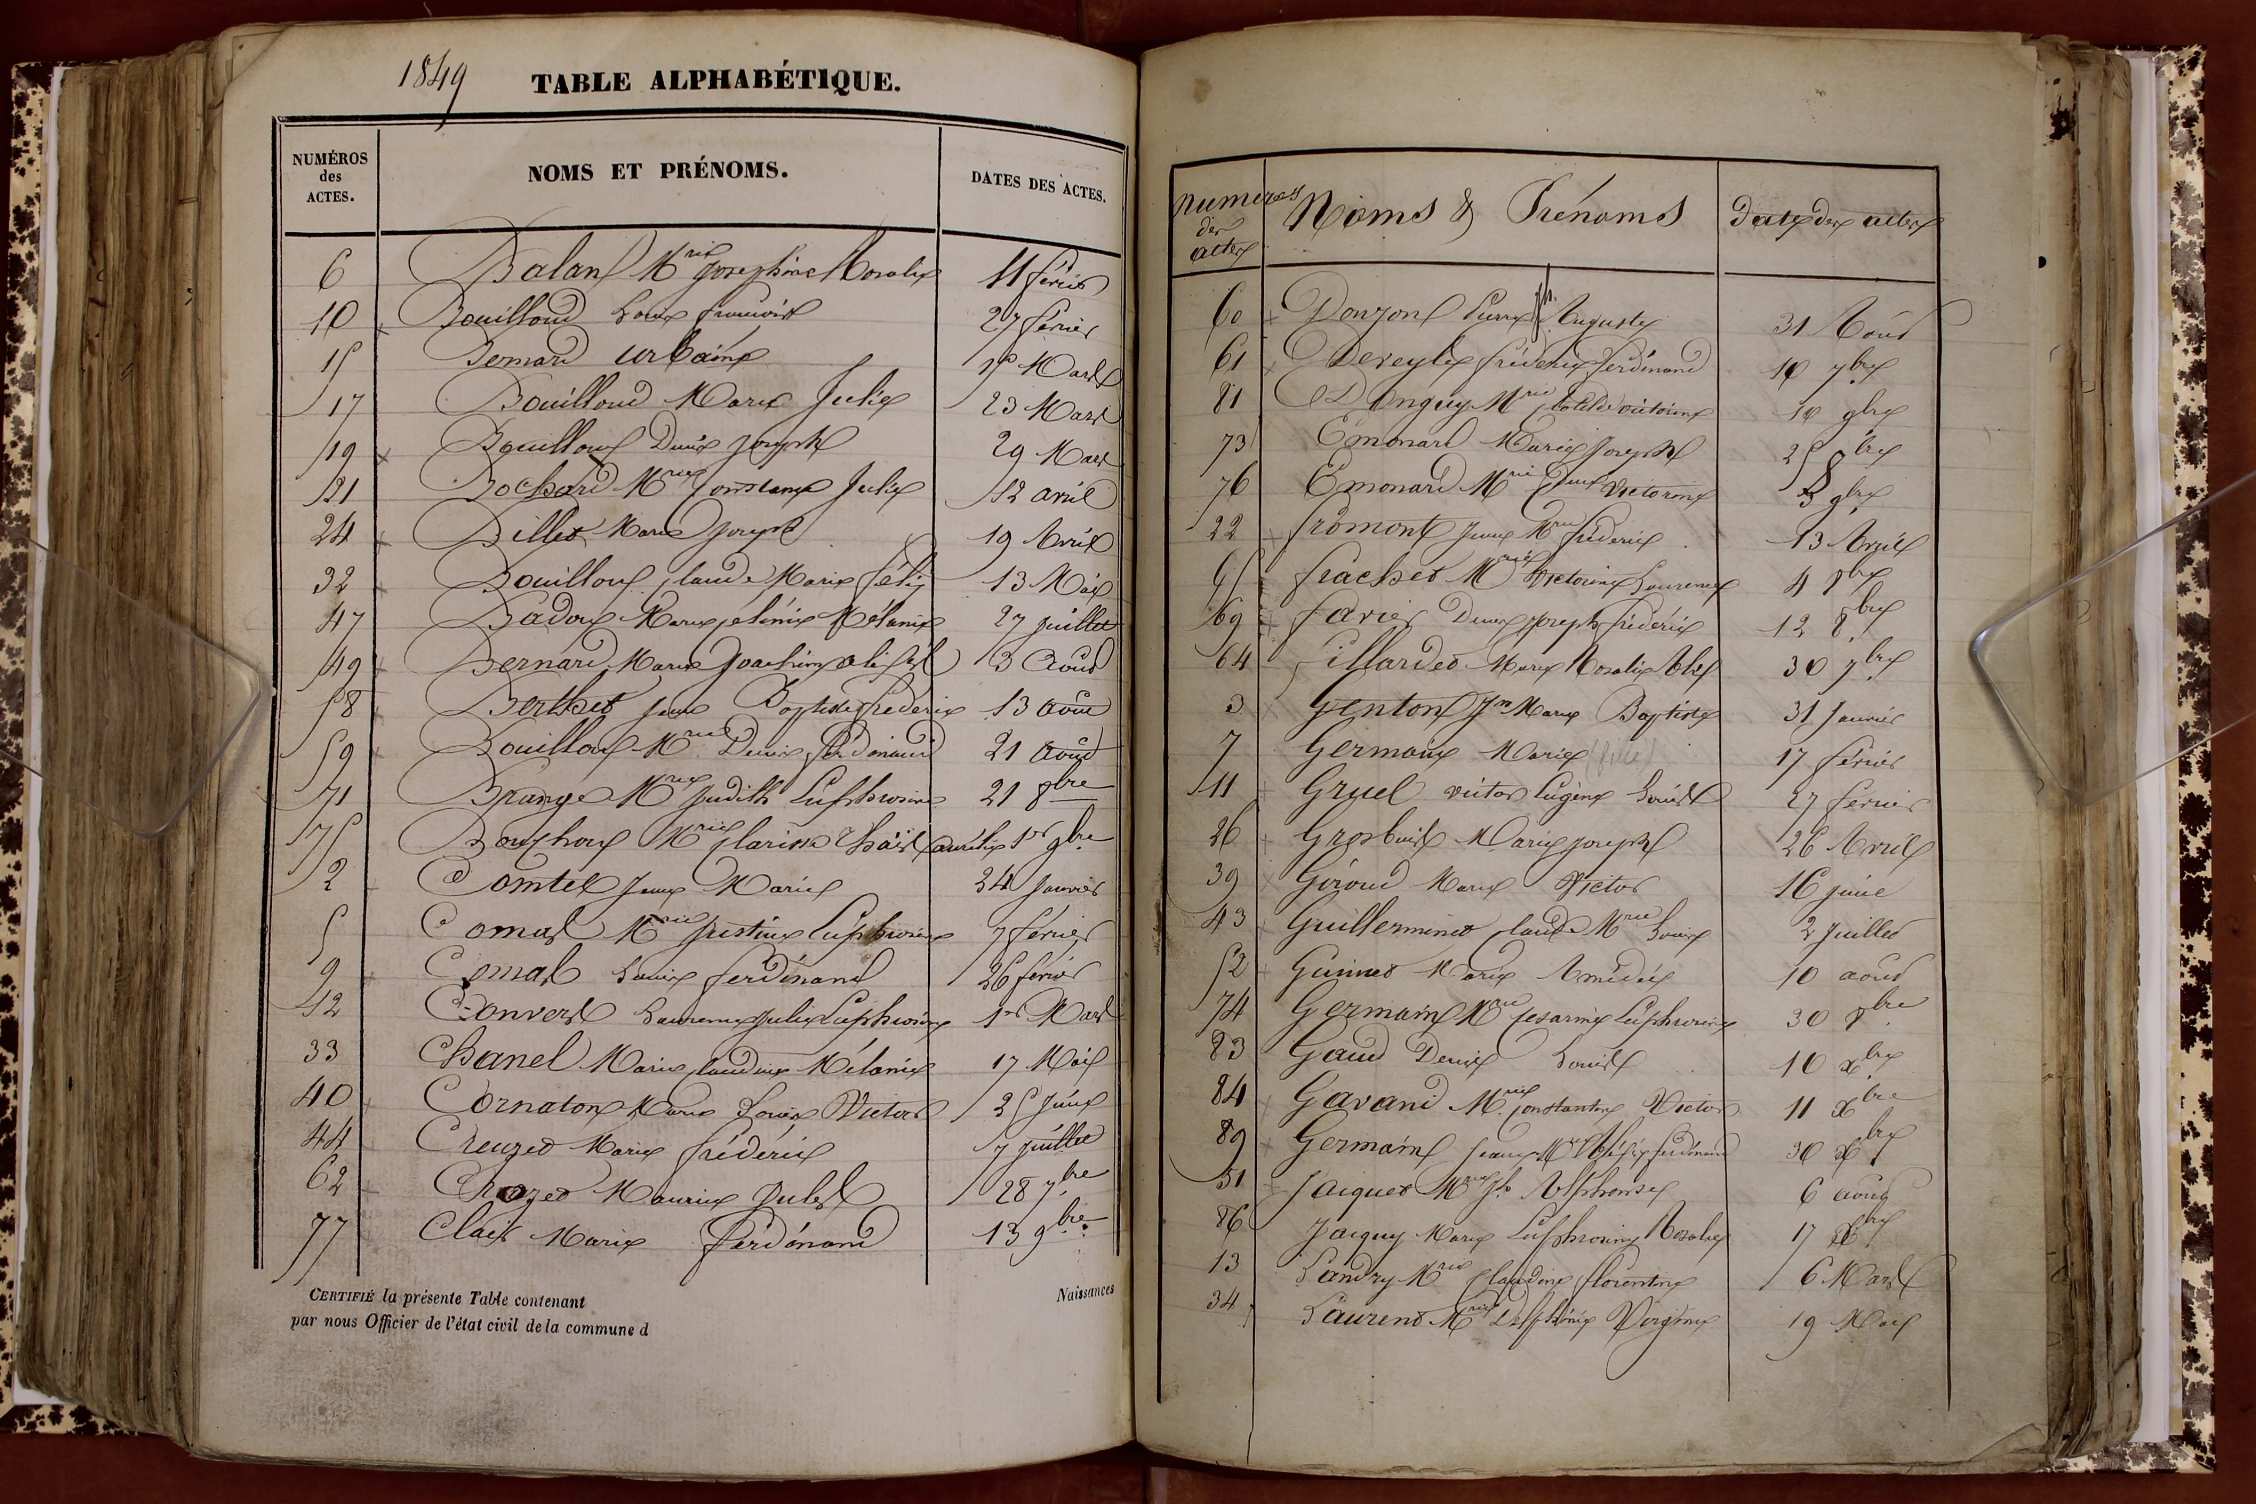 1849 TABLE ALPHABÉTIQUE.
NUMÉROS des ACTES. NOMS ET PRÉNOMS. DATES DES ACTES.
6 Balan Mrie Josephine Rosalie 11 février
10 Bouilloud Louis François 27 février
15 Bernard Urbain Mars
17 Bouilloud Marie Julie 23 Mars
19 Bouilloud Denis Joseph 29 Mars
21 Bochard Mrie Constance Julie 12 avril
24 Billet Marie Joseph 19 Avril
32 Bouilloud Claude Marie Félix 13 Mai
47 Badoux Marie Mélanie 27 juillet
49 Bernard Marie Joachim 3 Août
58 Berthet Jean Baptiste frédéric 13 août
59 Bouilloud Mrie Denis ferdinand 21 août
71 Mrie Judith Euphrosine 21 8bre
75 Mrie Clarisse Aurélie 1er 9bre
2 Comtet Jean Marie 24 Janvier
5 Comas Mrie Justine Euphrosine 7 février
9 Comas Louis ferdinand 26 février
12 Convers Laurence Julie Euphrosine 1er Mars
33 Chanel Marie Claudine Mélanie 17 Mai
40 Cornaton Marie Louis Victor 25 Juin
44 Creuzet Marie frédéric 7 juillet
62 Chozet Maurice Jules 28 7bre
77 Clair Marie Ferdinand 13 9bre
CERTIFIÉ la présente Table contenant Naissances
par nous Officier de l'état civil de la commune d
numeros des actes Noms & Prénoms date des actes
60 Donzon Pierre Jh. Auguste 31 Août
61 Deveyle frédéric ferdinand 10 7bre
81 Mrie Clotilde victorine 10 9bre
73 Emonard Marie Joseph 25 8bre
76 Emonard Mrie Victorine 9bre
22 fromont Jean Mrie frédéric 13 Avril
65 frachet Mrie Victorine Laurence 4 8bre
69 favier Denis Joseph frédéric 12 8bre
64 fillardet Marie Rosalie 30 7bre
3 Genton Jn Marie Baptiste 31 Janvier
7 Germain Marie 17 février
11 Gruel victor Eugène Louis 27 février
26 Grosbuis Marie Joseph 26 Avril
39 Giroud Marie Victor 16 juin
43 Guillerminet Claude Mrie Louis 2 Juillet
52 Guinet Marie Amédée 10 août
74 Germain Mrie Cesarine Euphrosine 30 8bre
83 Gaud Denis Louis 10 xbre
84 Gavand Mrie Constantin Victor 11 xbre
89 Germain Jean Mrie ferdinand 30 xbre
51 Jaiquet Mrie Jh Alphonse 6 août
86 Jaiquy Marie Euphrosine Rosalie 17 xbre
13 Landry Mrie Claudine florentine 6 Mars
34 Laurent Mrie Delphine Virginie 19 Mai